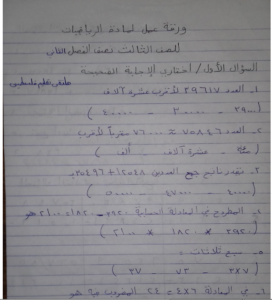 ورقة عمل لمادة الرياضيات
للصف الثالث نصف الفصل الثاني
السؤال الأول / أختار الإجابة الصحيحة
ملتقى تعليم فلسطين
١- العدد ٢٩٦١٧ لأقرب عشرة آلاف
( ٢٩٠٠٠ - ٣٠٠٠٠ - ٤٠٠٠٠ )
٢- العدد ٧٥٨٤٦ ≈ ٧٦٠٠٠ مقرباً لأقرب
( مئة - عشرة آلاف - ألف )
٣- تقدير ناتج جمع العددين ١٢٥٤٨ + ٣٥٤٩٦
( ٤٠٠٠٠ - ٤٧٠٠٠ - ٥٠٠٠٠ )
٤- المطروح في المعادلة الحسابية هو
( ٣٩٢٠ * ١٨٢٠ * ٢١٠٠ )
٥- سبع ثلاثات =
( ٣×٧ - ٧٣ - ٣٧ )
٦- في المعادلة ٦×٤ = ٢٤ المضروب فيه هو